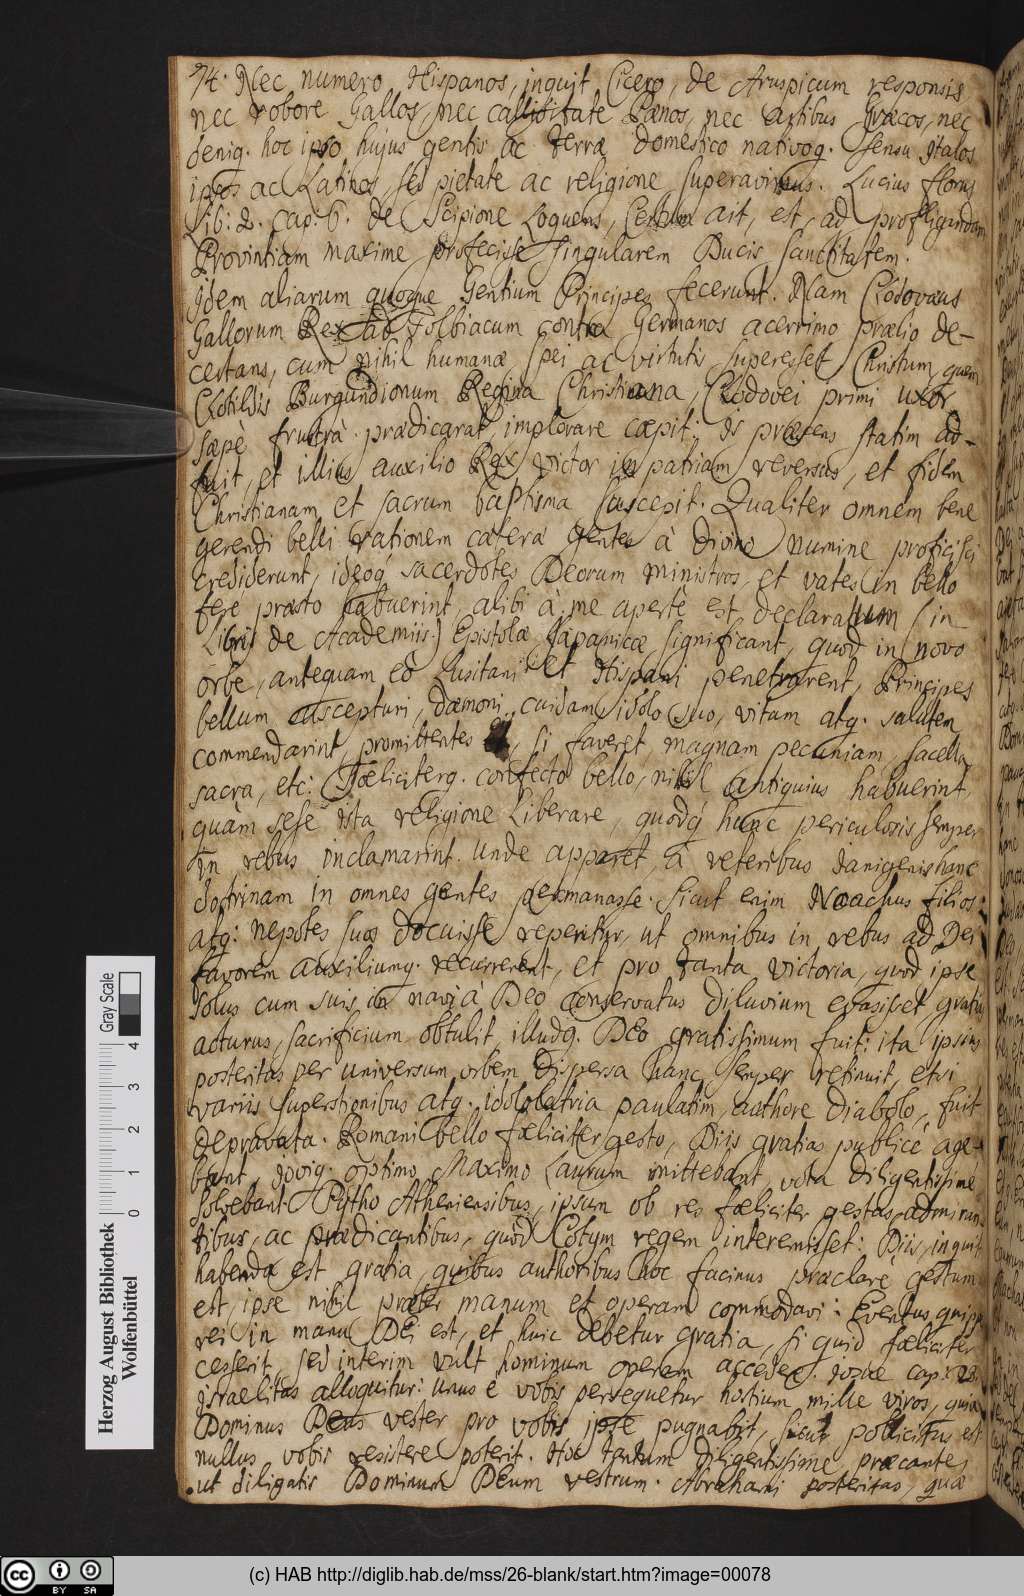 74. Nec numero Hispanos, inquit Cicero, de Aruspicum responsis
nec robore Gallos, nec calliditate Pœnos, nec artibus Græcos, nec
deniq. hoc ipso hujus gentis ac terræ domestico nativoq. sensu Italos
ipsos ac Latinos, sed pietate ac religione superavimus. Lucius florus
Lib: 2. cap. 6. de Scipione Loquens, Certum ait, et, ad profligandam
Provintiam maxime profecisse singularem Ducis sanctitatem.
Idem aliarum quoque Gentium Principes fecerunt. Nam Clodovæus
Gallorum Rex ad Tolbiacum contra Germanos acerrimo prælio de-
certans, cum nihil humanæ spei ac virtutis superesset Christum, quem
Clotildis Burgundionum Regina Christiana, Clodovei primi uxor
sæpè frustrà prædicarat, implorare cæpit: is præsens statim ad-
fuit, et illius auxilio Rex victor in patriam reversus, et fidem
Christianam et sacrum baptisma suscepit. Qualiter omnem bene
gerendi belli rationem cæteræ gentes à divino numine proficisci
crediderunt, ideoq sacerdotes Deorum ministros, et vates in bello
fere præsto habuerint, alibi à me apertè est declaratum (in
Libris de Academiis.) Epistolæ Japanicæ significant, quod in novo
orbe, antequam eò Lusitani et Hispani penetrarent, Principes
bellum suscepturi, dæmoni, cuidam idolo suo, vitam atq. salutem
commendarint, promittentes ei, si faveret, magnam pecuniam, sacella
sacra, etc: Fæliciterq. confecto bello, nihil antiquius habuerint,
quàm sese ista religione Liberare, quodq́ hunc periculosis semper
in rebus inclamarint. Unde apparet, à veteribus Ianigenis hanc
doctrinam in omnes gentes permanasse. Sicut enim Noachus filios
atq: nepotes suos docuisse reperitur, ut omnibus in rebus ad Dei
favorem auxiliumq. recurrerent, et pro tanta victoria, quod ipse
solus cum suis in navi à Deo conservatus diluvium evasisset, gratias
acturus, sacrificium obtulit, illudq. Deo gratissimum fuit: ita ipsius
posteritas per universum orbem dispersa hanc semper retinuit, etsi
variis superstionibus atq. idololatria paulatim, authore diabolo, fuit
depravata. Romani bello fæliciter gesto, Diis gratias publicè age-
bant, Joviq. optimo Maximo Laurum mittebant, vota diligentissime
solvebant. Pytho Atheniensibus, ipsum ob res fæliciter gestas, admiran-
tibus, ac prædicantibus, quòd Cotym regem interemisset: Diis, inquit,
habenda est gratia, quibus authoribus hoc facinus præclarè gestum
est, ipse nihil præter manum et operam commodavi: Eventus quippe
rei in manu Dei est, et huic debetur gratia, si quid fæliciter
cesserit, sed interim vult hominum operam accedere. Josuæ cap: 23.
Israelitas alloquitur: Unus è vobis persequetur hostium mille viros, quia
Dominus Deus vester pro vobis ipse pugnabit, sicut pollicitus est
nullus vobis resistere poterit. Hoc tantum diligentissime præcantes
ut diligatis Dominum Deum vestrum. Abrahami posteritas, quæ
Herzog August Bibliothek
Wolfenbüttel
0 1 2 3 4
Gray Scale
cc BY SA
(c) HAB http://diglib.hab.de/mss/26-blank/start.htm?image=00078